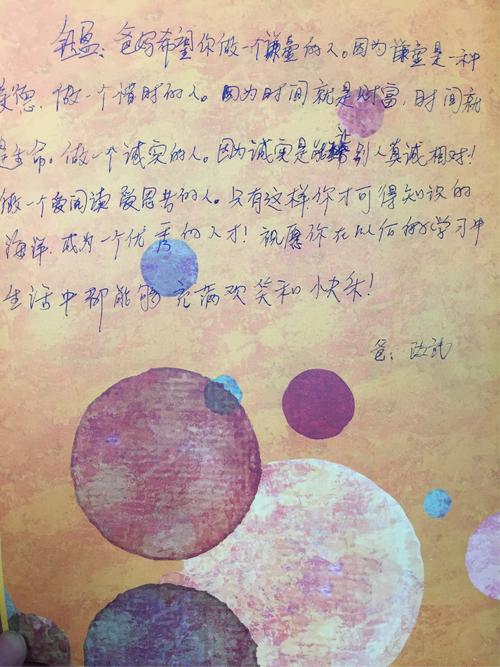 盈：爸妈希望你做一个谦虚的人。因为谦虚是一种
美德，做一个惜时的人。因为时间就是财富，时间就
是生命。做一个诚实的人。因为诚实是能让别人真诚相对！
做一个爱阅读爱思考的人。只有这样你才可得知识的
海洋，成为一个优秀的人才！祝愿你在以后的学习中
生活中都能够充满欢笑和快乐！
爸：